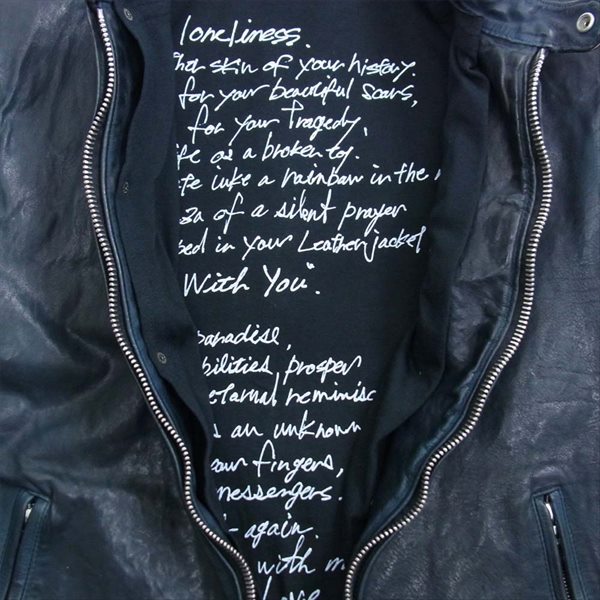 loneliness.
her skin of your history.
for your beautiful scars,
for your Tragedy,
ife as a broken toy.
ife like a rainbow in the n
of a silent prayer
sed in your Leather jacket
With You".
paradise,
bilities prosper
eternal reminisc
s an unknown
our fingers,
messengers.
- again.
with m
Love